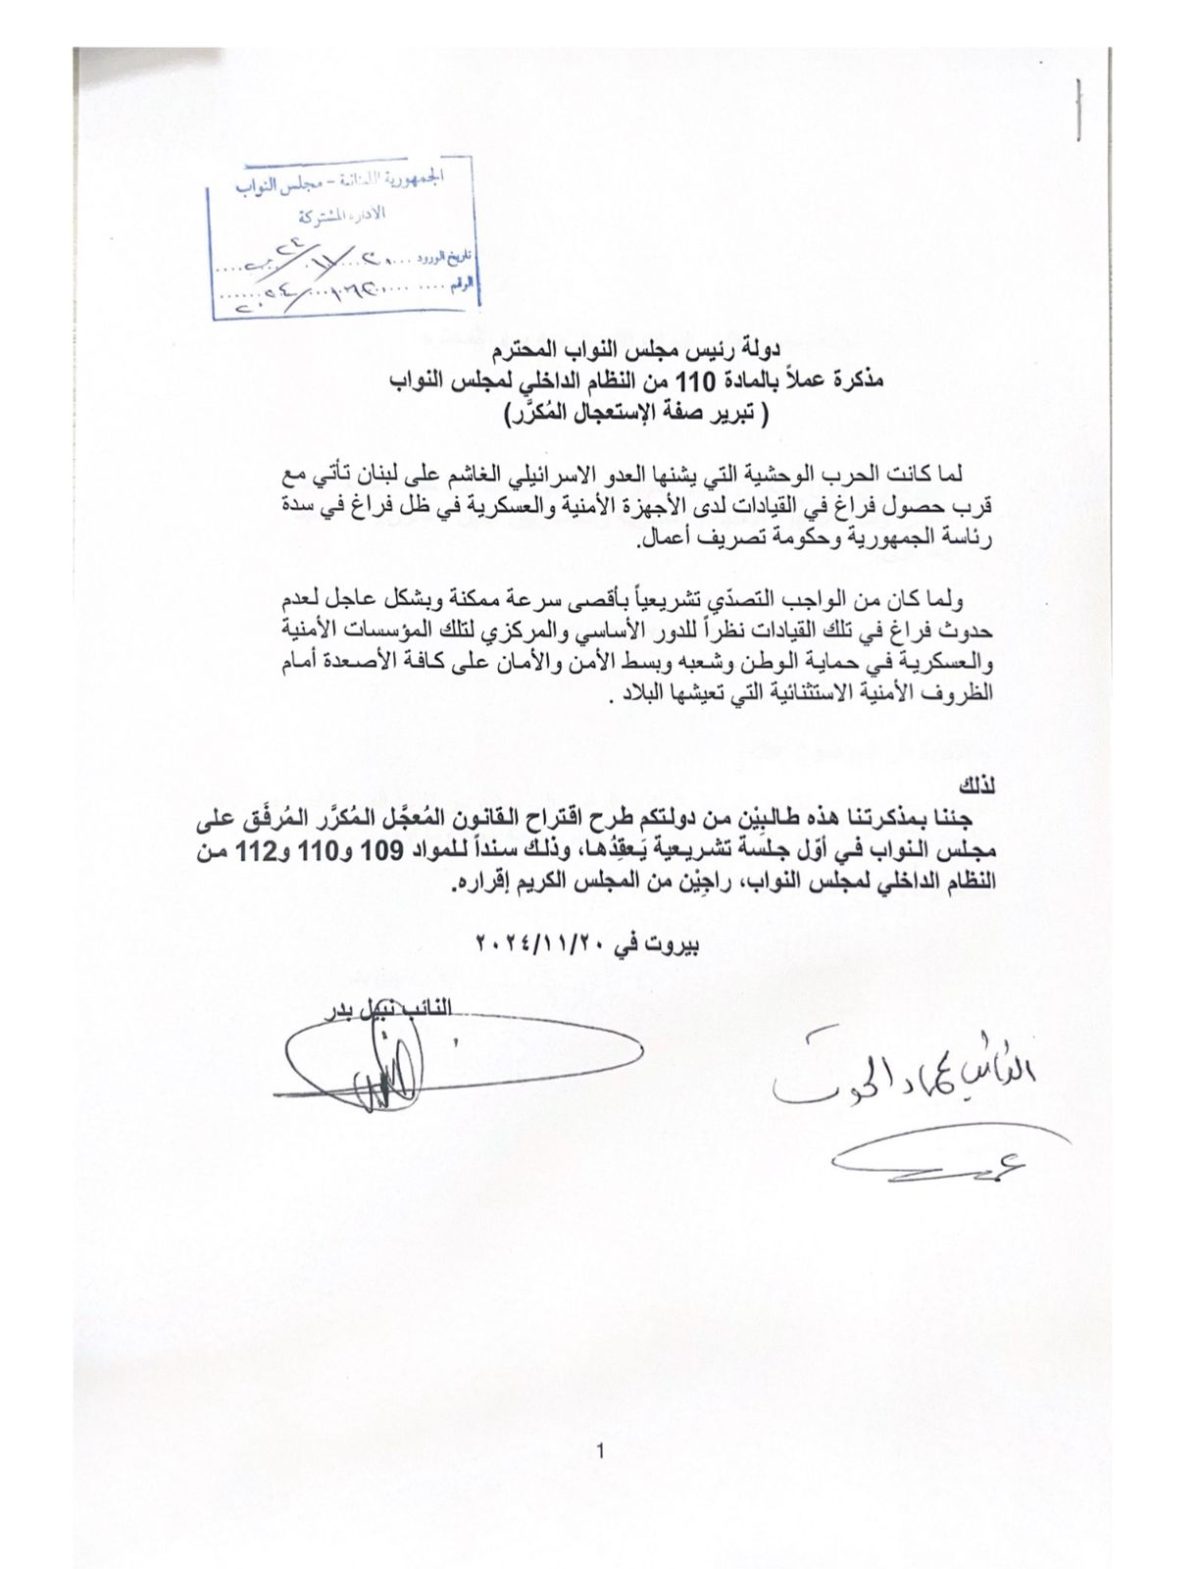 الجمهورية اللبنانية - مجلس النواب
الادارة المشتركة
تاريخ الورود ٢٠ / ١١ / ٢٠٢٤
الرقم
دولة رئيس مجلس النواب المحترم
مذكرة عملاً بالمادة 110 من النظام الداخلي لمجلس النواب
( تبرير صفة الإستعجال المُكرَّر)
لما كانت الحرب الوحشية التي يشنها العدو الاسرائيلي الغاشم على لبنان تأتي مع
قرب حصول فراغ في القيادات لدى الأجهزة الأمنية والعسكرية في ظل فراغ في سدة
رئاسة الجمهورية وحكومة تصريف أعمال.
ولما كان من الواجب التصدّي تشريعياً بأقصى سرعة ممكنة وبشكل عاجل لعدم
حدوث فراغ في تلك القيادات نظراً للدور الأساسي والمركزي لتلك المؤسسات الأمنية
والعسكرية في حماية الوطن وشعبه وبسط الأمن والأمان على كافة الأصعدة أمام
الظروف الأمنية الاستثنائية التي تعيشها البلاد .
لذلك
جئنا بمذكرتنا هذه طالبِيْن من دولتكم طرح اقتراح القانون المُعجَّل المُكرَّر المُرفَق على
مجلس النواب في أوّل جلسة تشريعية يَعقِدُها، وذلك سنداً للمواد 109 و110 و112 من
النظام الداخلي لمجلس النواب، راجِيْن من المجلس الكريم إقراره.
بيروت في ٢٠٢٤/١١/٢٠
النائب نبيل بدر
النائب عماد الحوت
1